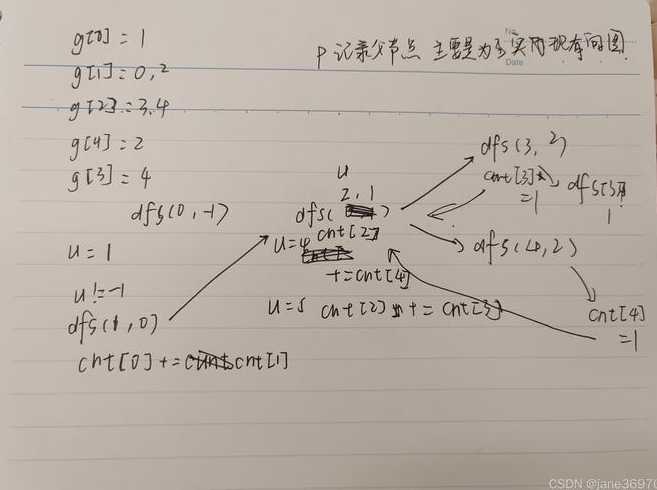 g[0] = 1
p 记录父节点 主要是为了实现有向图
No.
Date
g[1] = 0, 2
g[2] = 3, 4
g[4] = 2
g[3] = 4
dfs(0, -1)
u = 1
u != -1
dfs(1, 0)
cnt[0] += cnt[1]
u
2, 1
dfs( )
u=4 cnt[2]
+= cnt[4]
u=5 cnt[2] += cnt[3]
dfs(3, 2)
cnt[3]
=1
dfs[3]
1
dfs(4, 2)
cnt[4]
=1
CSDN @jane36970